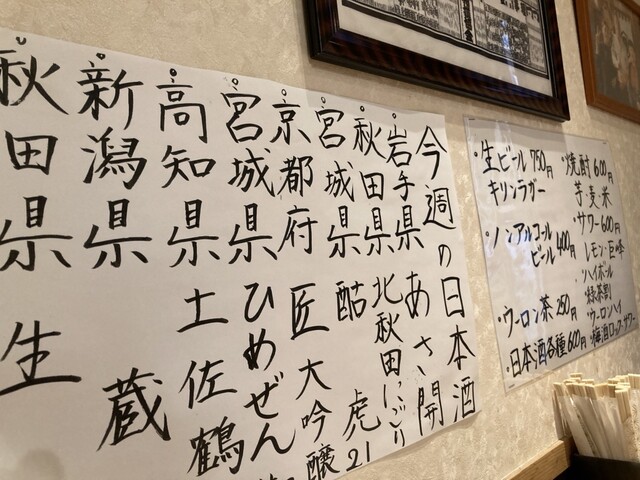 今週の日本酒
岩手県 あさ開
秋田県 北秋田にごり
宮城県 酷 虎21
京都府 匠 大吟醸
宮城県 ひめぜん
高知県 土佐鶴
新潟県 蔵
秋田県 生
・焼酎 600円
芋・麦・米
・サワー 600円
レモン・巨峰
・ハイボール
・緑茶割
・ウーロンハイ
・梅酒ロック・サワー
・生ビール 750円
キリンラガー
・ノンアルコール
ビール 400円
・ウーロン茶 250円
・日本酒各種 600円